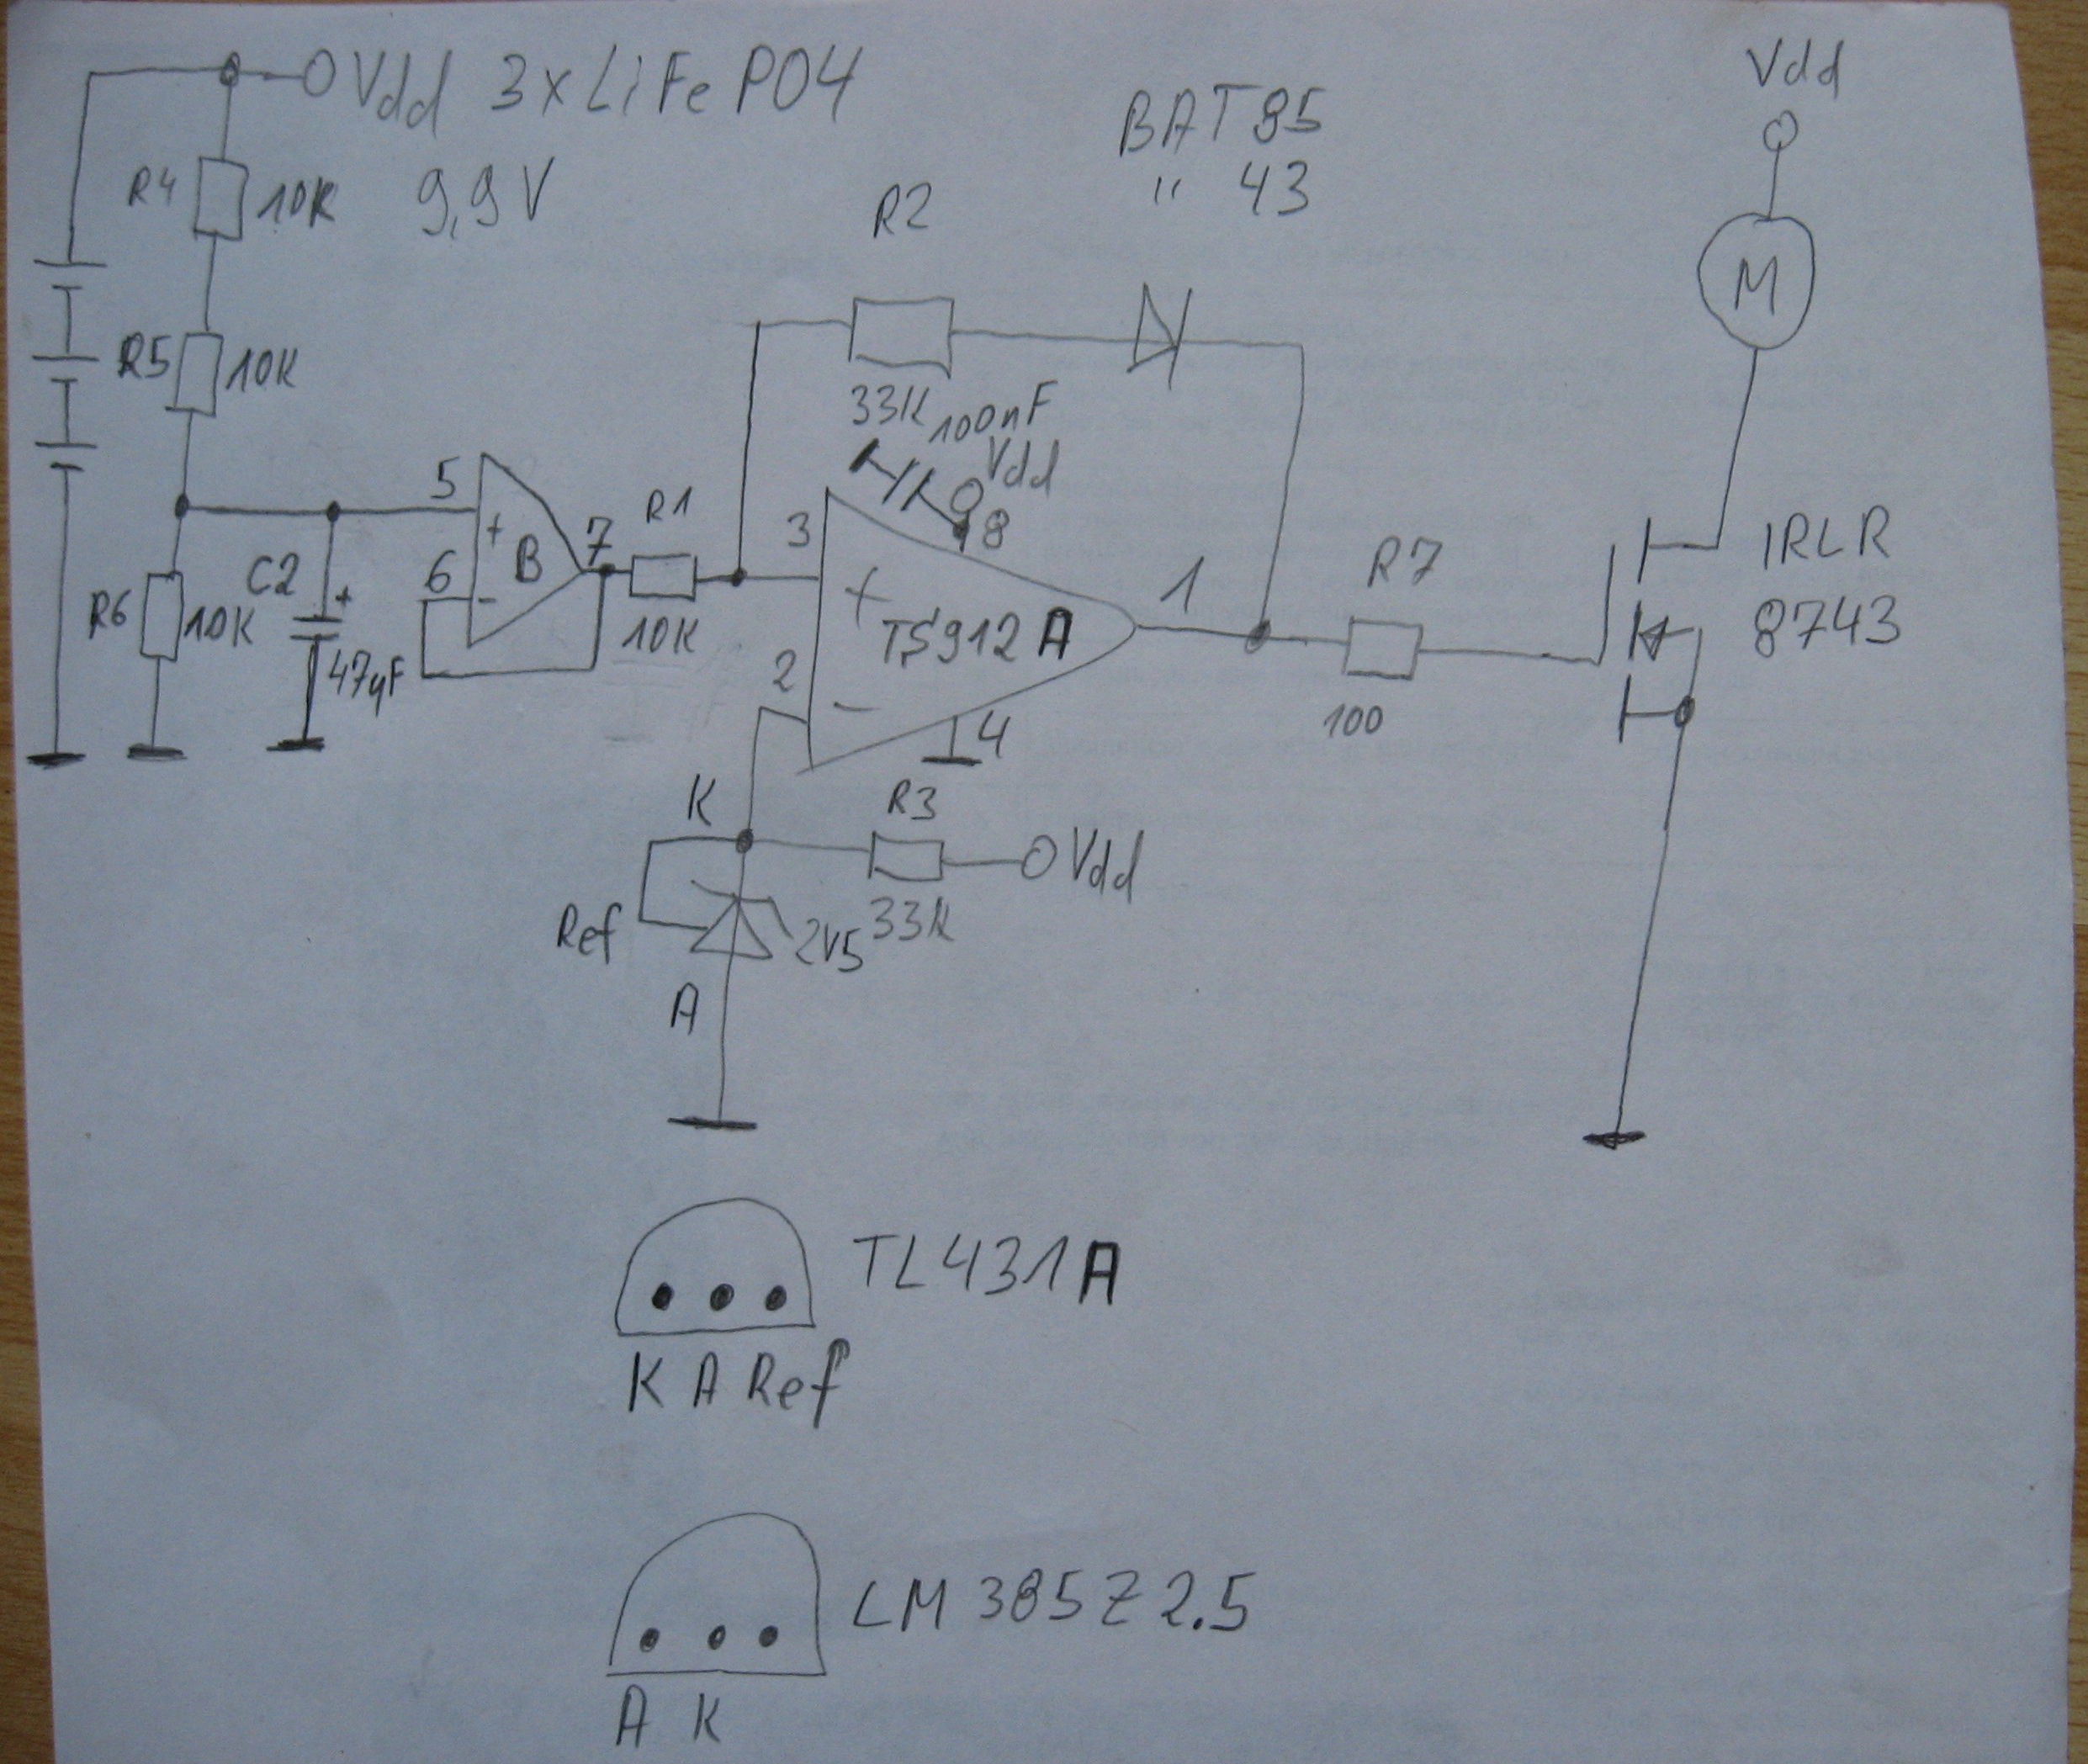 Vdd 3xLiFePO4
9,9V
BAT85
" 43
Vdd
R4
10K
R2
M
R5
10K
33K
100nF
Vdd
5
+
B
6
-
7
R1
10K
3
+
TS912A
2
-
8
4
1
R7
100
IRLR
8743
R6
10K
C2
+
47µF
K
R3
Vdd
33K
Ref
2V5
A
TL431A
K A Ref
LM385Z2.5
A K